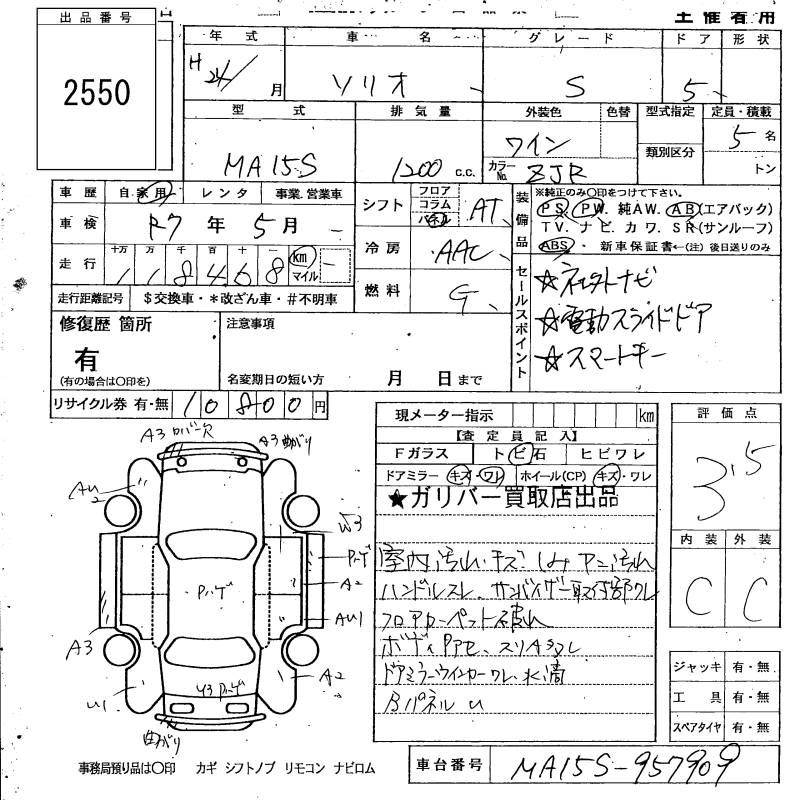 出品番号
2550
主催者用
年式 車名 グレード ドア 形状
H24/ 月 ソリオ S 5
型式 排気量 外装色 色替 型式指定 定員・積載
MA15S 1200 c.c. ワイン 類別区分 5名
カラーNo. ZJR トン
車歴 自家用 レンタ 事業.営業車
車検 R7年 5月
走行 十万 万 千 百 十 一 km マイル
118468
走行距離記号 $交換車・*改ざん車・#不明車
シフト フロア コラム AT
冷房 AAC
燃料 G
装備品 ※純正のみ〇印をつけて下さい。
PS. PW. 純AW. AB(エアバック)
TV. ナビ. カワ. SR(サンルーフ)
ABS・新車保証書←(注)後日送りのみ
セールスポイント
☆社外ナビ
☆電動スライドドア
☆スマートキー
修復歴 箇所
有
(有の場合は〇印を)
注意事項
名変期日の短い方 月 日まで
リサイクル券 有・無 10800円
現メーター指示 km
【査定員記入】
Fガラス トビ石 ヒビワレ
ドアミラー キズ・ワレ ホイール(CP) キズ・ワレ
★ガリバー買取店出品
室内汚れ・キズ・しみ ヤニ汚れ
ハンドルスレ、サンバイザー取付部ワレ
フロアカーペット破れ
ドアミラーウインカーワレ、水滴
Bパネル U
評価点
3.5
内装 外装
C C
ジャッキ 有・無
工具 有・無
スペアタイヤ 有・無
A3 カバー欠
A3 曲がり
W3
A2
AU1
A3
A2
U1
曲がり
事務局預り品は〇印 カギ シフトノブ リモコン ナビロム
車台番号 MA15S-957909